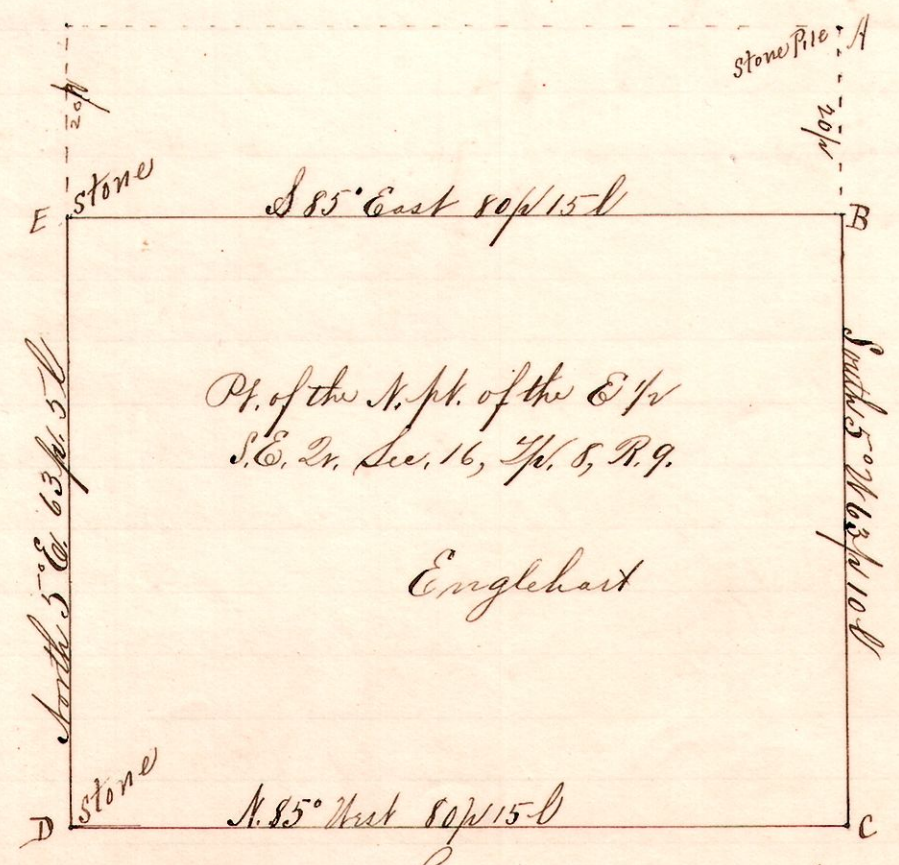 A
Stone Pile
20p
20p
Stone
E
S 85° East 80p 15l
B
North 5° E. 63p. 5l
South 5° W 63p 10l
Pt. of the N. pt. of the E 1/2
S.E. Qr. Sec. 16, Tp. 8, R. 9.
Englehart
Stone
D
N. 85° West 80p 15l
C